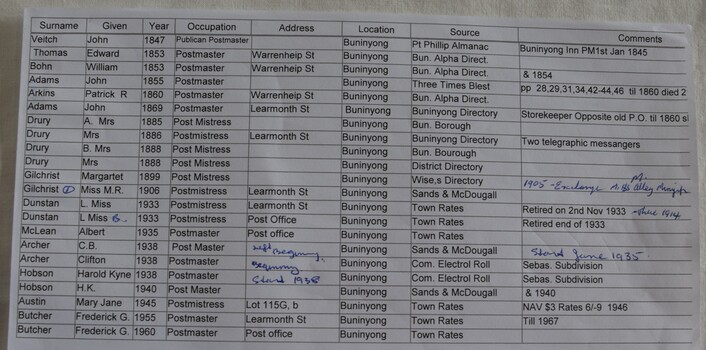 Surname Given Year Occupation Address Location Source Comments
Veitch John 1847 Publican Postmaster Buninyong Pt Phillip Almanac Buninyong Inn PM1st Jan 1845
Thomas Edward 1853 Postmaster Warrenheip St Buninyong Bun. Alpha Direct.
Bohn William 1853 Postmaster Warrenheip St Buninyong Bun. Alpha Direct. & 1854
Adams John 1855 Postmaster Buninyong Three Times Blest pp 28,29,31,34,42-44,46 til 1860 died 2
Arkins Patrick R 1860 Postmaster Warrenheip St Buninyong Bun. Alpha Direct.
Adams John 1869 Postmaster Learmonth St Buninyong Buninyong Directory Storekeeper Opposite old P.O. til 1860
Drury A. Mrs 1885 Post Mistress Buninyong Bun. Borough
Drury Mrs 1886 Postmistress Learmonth St Buninyong Buninyong Directory Two telegraphic messangers
Drury B. Mrs 1888 Post Mistress Buninyong Bun. Bourough
Drury Mrs 1888 Post Mistress Buninyong District Directory
Gilchrist Margartet 1899 Post Mistress Buninyong Wise,s Directory 1905 - Exchange
Gilchrist 1 Miss M.R. 1906 Postmistress Learmonth St Buninyong Sands & McDougall
Dunstan L. Miss 1933 Postmistress Learmonth St Buninyong Town Rates Retired on 2nd Nov 1933 1914
Dunstan L Miss 1933 Postmistress Post Office Buninyong Town Rates Retired end of 1933
McLean Albert 1935 Postmaster Post office Buninyong Town Rates
Archer C.B. 1938 Post Master Left Beginning, Buninyong Sands & McDougall Stard June 1935.
Archer Clifton 1938 Postmaster Beginning Buninyong Com. Electrol Roll Sebas. Subdivision
Hobson Harold Kyne 1938 Postmaster Stard 1938 Buninyong Com. Electrol Roll Sebas. Subdivision
Hobson H.K. 1940 Post Master Buninyong Sands & McDougall & 1940
Austin Mary Jane 1945 Postmistress Lot 115G, b Buninyong Town Rates NAV $3 Rates 6/-9 1946
Butcher Frederick G. 1955 Postmaster Learmonth St Buninyong Town Rates Till 1967
Butcher Frederick G. 1960 Postmaster Post office Buninyong Town Rates